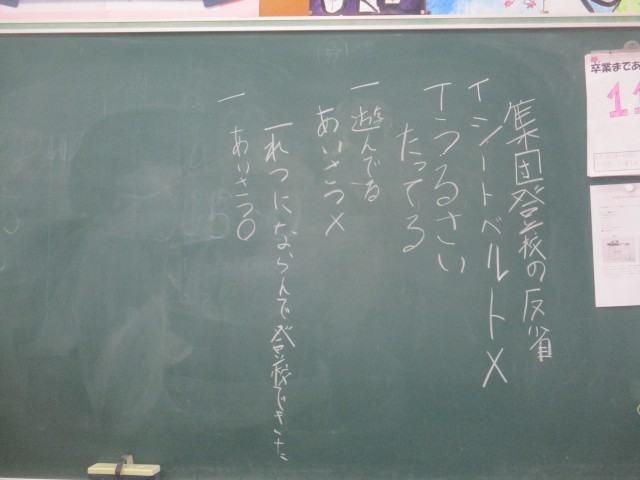 集団登校の反省
イシートベルト×
Tうるさい
たってる
一遊んでる
あいさつ×
一れつにならんで登校できた
一
あいさつ○
卒業まであ
11